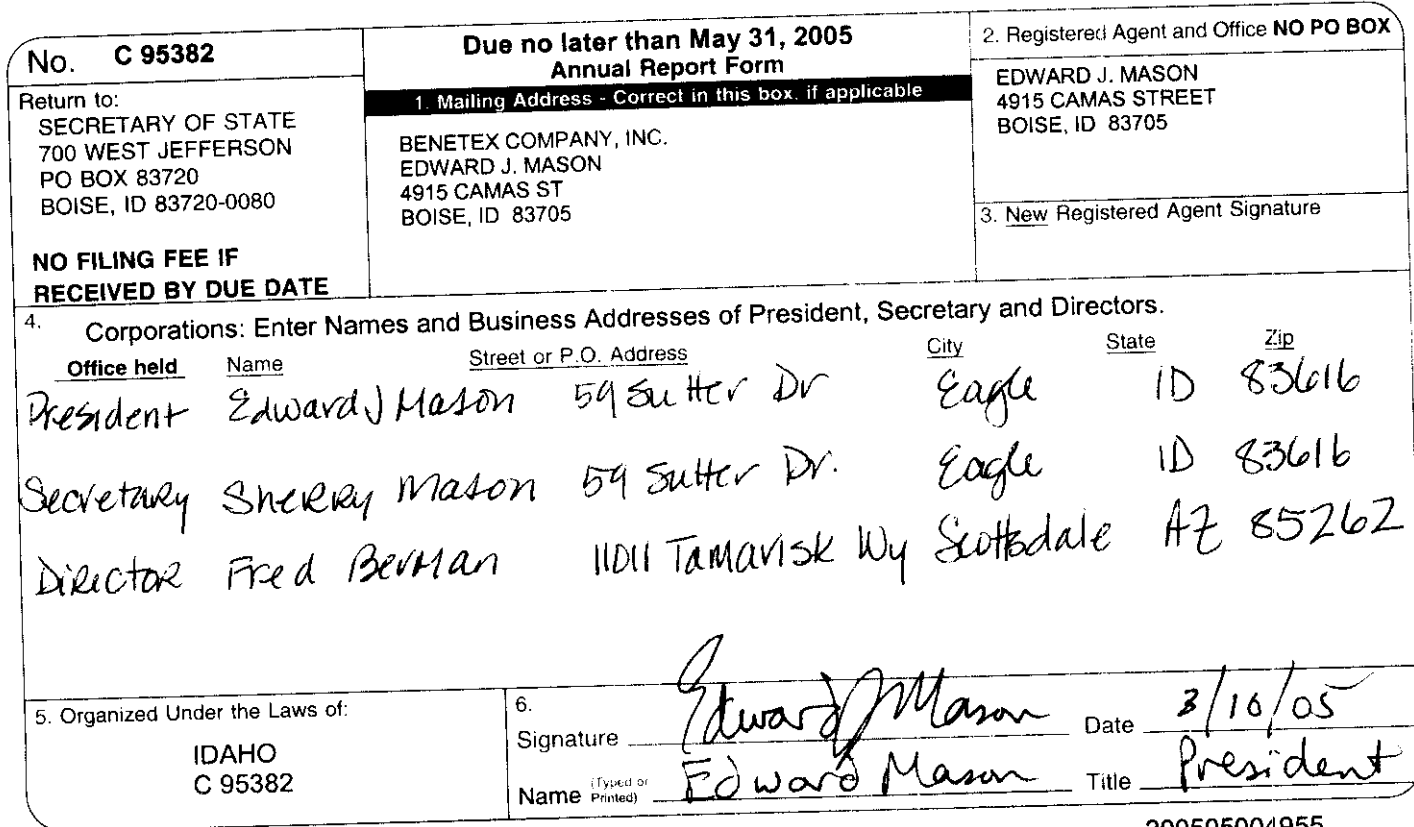 No. C 95382
Return to:
SECRETARY OF STATE
700 WEST JEFFERSON
PO BOX 83720
BOISE, ID 83720-0080
NO FILING FEE IF
RECEIVED BY DUE DATE
Due no later than May 31, 2005
Annual Report Form
1. Mailing Address - Correct in this box, if applicable
BENETEX COMPANY, INC.
EDWARD J. MASON
4915 CAMAS ST
BOISE, ID 83705
2. Registered Agent and Office NO PO BOX
EDWARD J. MASON
4915 CAMAS STREET
BOISE, ID 83705
3. New Registered Agent Signature
4. Corporations: Enter Names and Business Addresses of President, Secretary and Directors.
Office held Name Street or P.O. Address City State Zip
President Edward J Mason 59 Sutter Dr Eagle ID 83616
Secretary Sherry Mason 59 Sutter Dr. Eagle ID 83616
Director Fred Berman 11011 Tamarisk Wy Scottsdale AZ 85262
5. Organized Under the Laws of:
IDAHO
C 95382
6.
Signature Edward J Mason Date 3/10/05
Name (Typed or Printed) Edward Mason Title President
200505004955